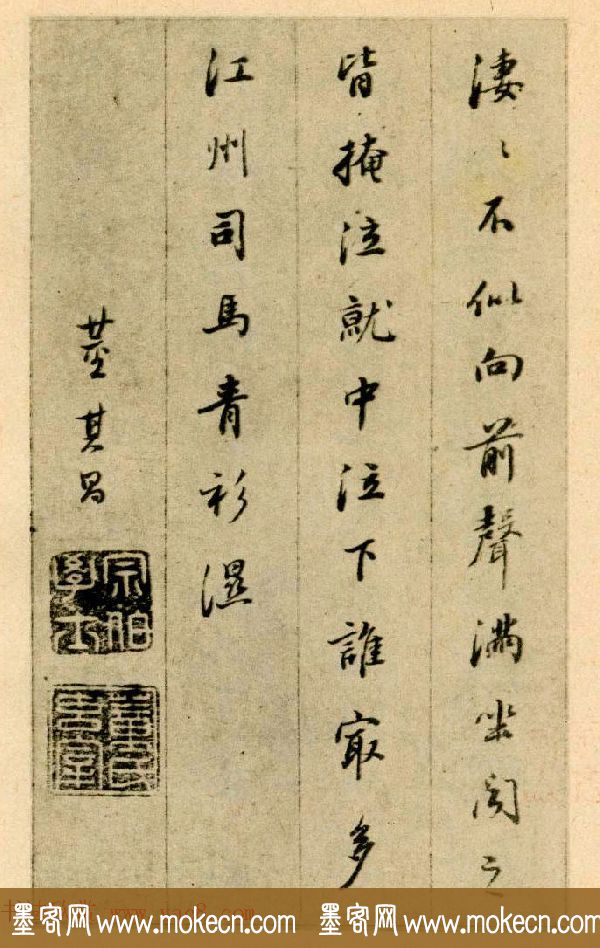 淒〻不似向前聲滿坐聞之
皆掩泣就中泣下誰最多
江州司馬青衫濕
董其昌
宗伯學士
董氏玄宰
墨客网 www.mokecn.com 墨客网 www.mokecn.com